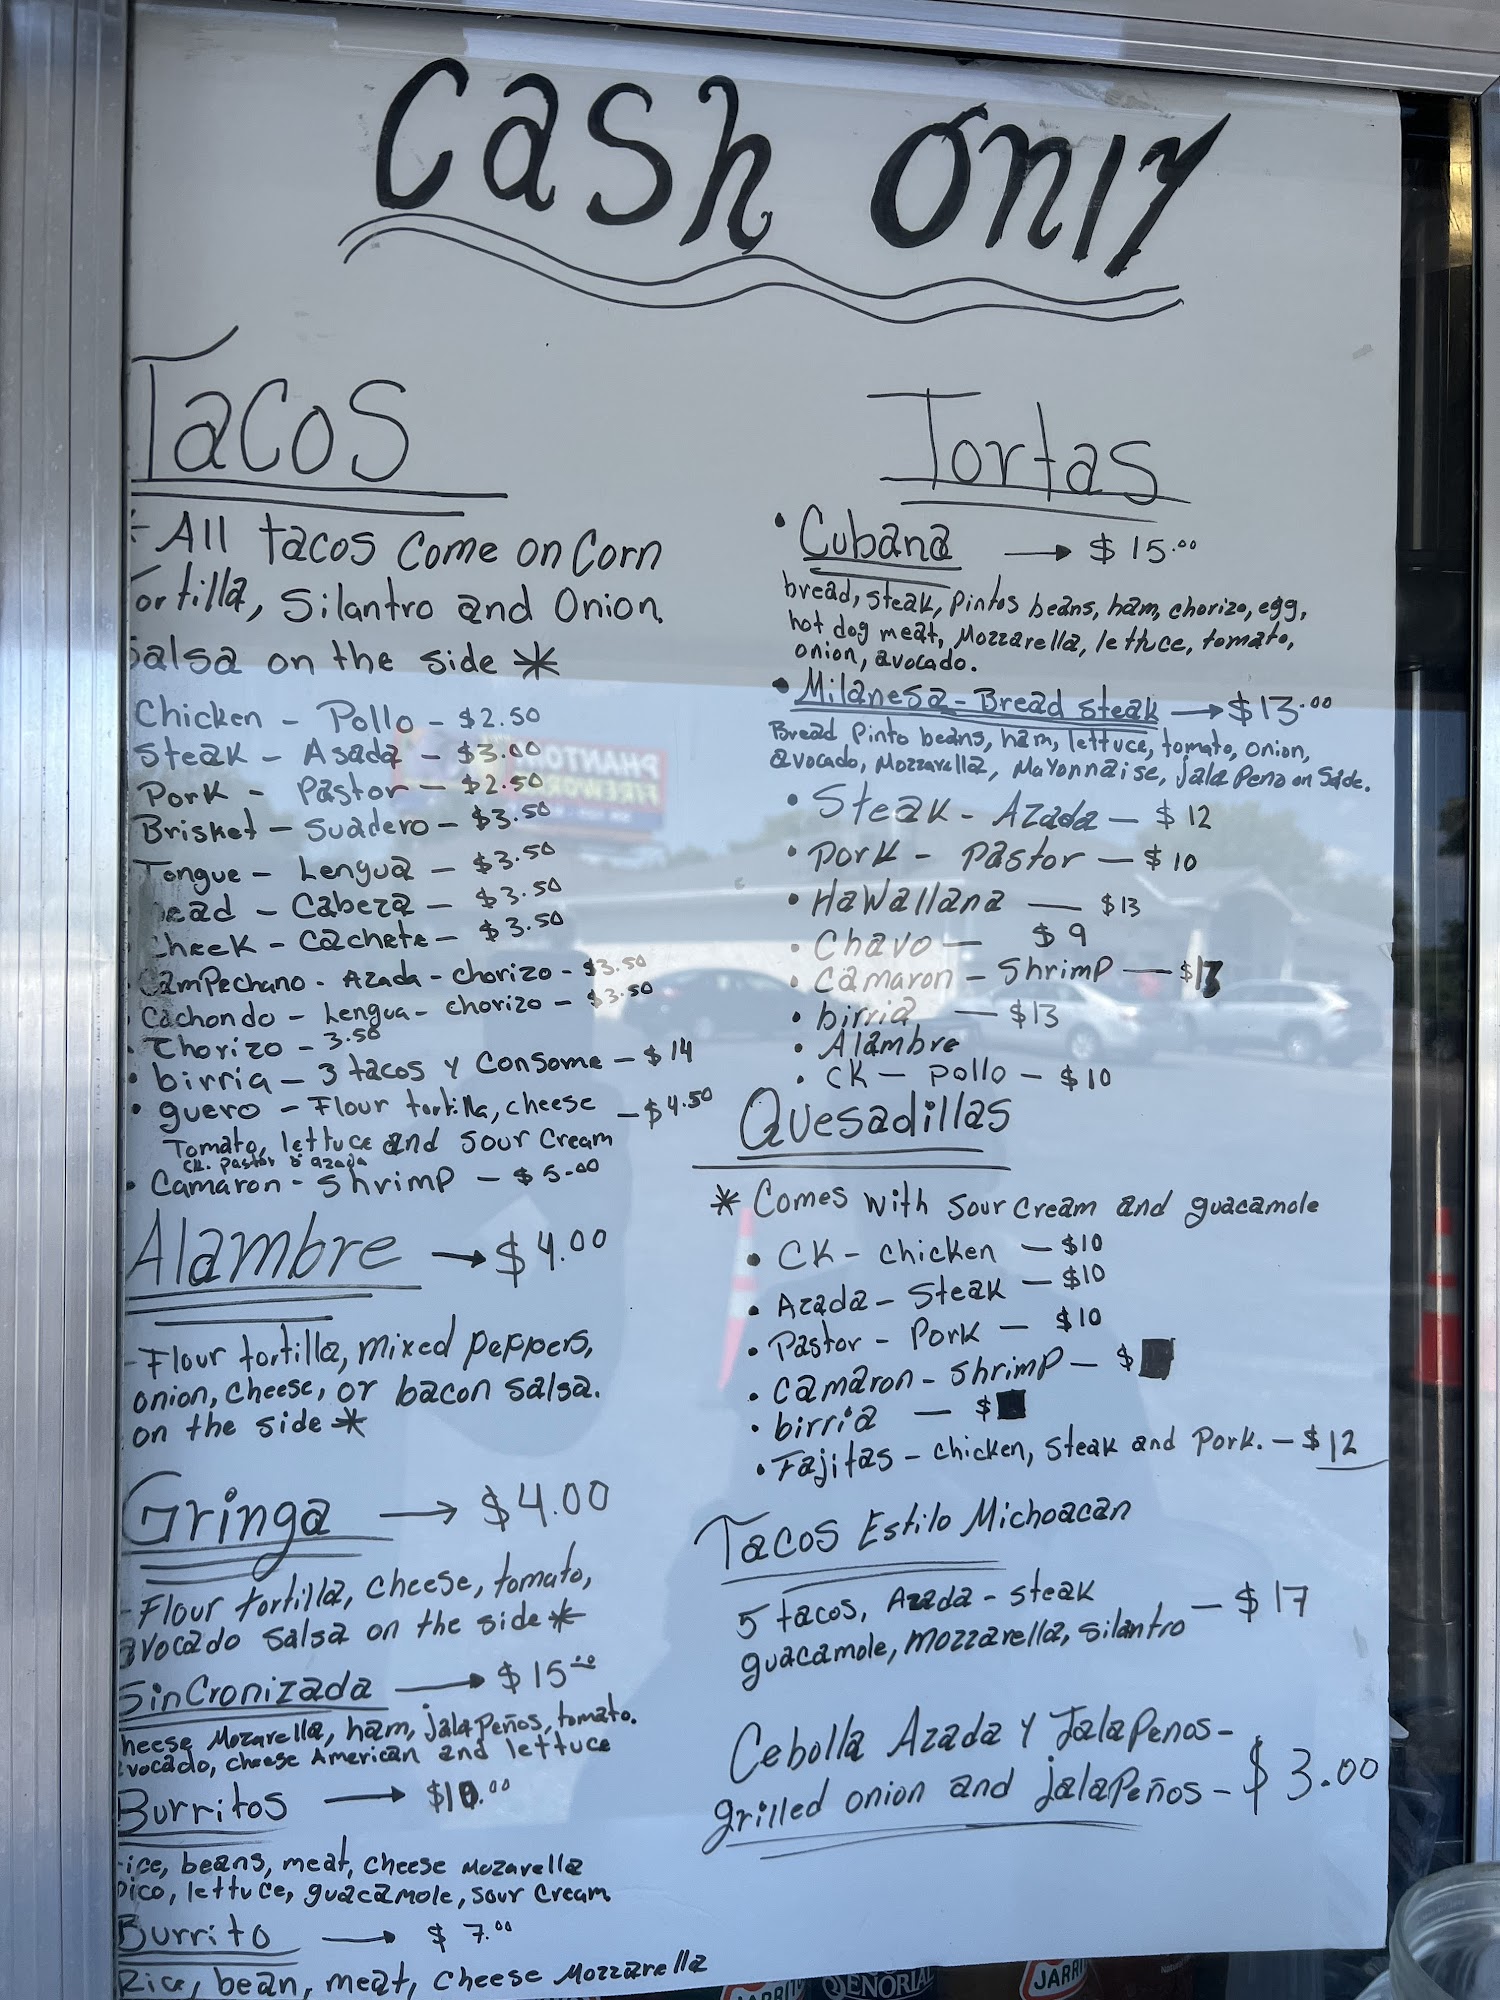 Cash Only
Tacos
All tacos Come on Corn
Tortilla, Silantro and Onion
Salsa on the side *
Chicken - Pollo - $2.50
Steak - Asada - $3.00
Pork - Pastor - $2.50
Brisket - Suadero - $3.50
Tongue - Lengua - $3.50
ead - Cabeza - $3.50
Cheek - Cachete - $3.50
Campechano - Azada - chorizo - $3.50
• Cachondo - Lengua - chorizo - $3.50
• Chorizo - 3.50
• birria - 3 tacos y Consome - $14
• guero - Flour tortilla, cheese - $4.50
Tomato, lettuce and sour Cream
CK. pastor o azada
• Camaron - Shrimp - $5.00
Alambre → $4.00
- Flour tortilla, mixed peppers,
onion, cheese, or bacon salsa.
on the side *
Gringa → $4.00
- Flour tortilla, cheese, tomato,
avocado salsa on the side *
SinCronizada → $15.00
heese Mozarella, ham, jalapeños, tomato.
avocado, cheese American and lettuce
Burritos → $10.00
rice, beans, meat, cheese Mozarella
pico, lettuce, guacamole, sour Cream
Burrito → $7.00
Rice, bean, meat, cheese Mozzarella
Tortas
• Cubana → $15.00
bread, steak, Pintos beans, ham, chorizo, egg,
hot dog meat, Mozzarella, lettuce, tomato,
onion, avocado.
• Milanesa - Bread steak → $13.00
Bread Pinto beans, ham, lettuce, tomato, onion,
avocado, Mozzarella, Mayonnaise, jalapeno on Side.
• Steak - Azada - $12
• Pork - Pastor - $10
• Hawallana - $13
• Chavo - $9
• Camaron - Shrimp - $13
• birria - $13
• Alambre
• CK - pollo - $10
Quesadillas
* Comes with sour cream and guacamole
• CK - chicken - $10
• Azada - Steak - $10
• Pastor - Pork - $10
• Camaron - Shrimp - $
• birria - $
• Fajitas - chicken, steak and Pork. - $12
Tacos Estilo Michoacan
5 tacos, Azada - steak - $17
guacamole, mozzarella, silantro
Cebolla Azada y Jalapenos -
grilled onion and jalapeños - $3.00
JARRIT
SEÑORIAL
JARRI
PHANTOM
FIREWORKS